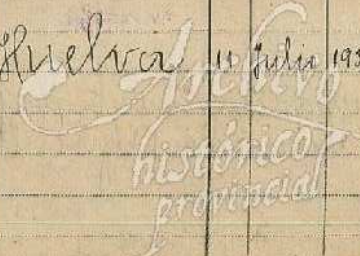 Huelva 11 Julio 193
Archivo
histórico
provincial